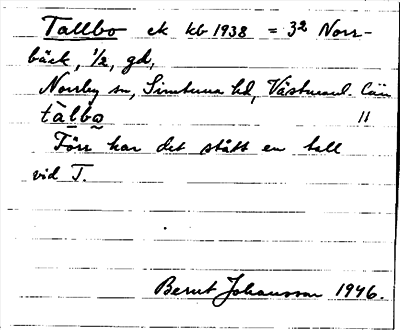 Tallbo ek kb 1938 = 3² Norr-
bäck, 1/2, gd,
Norrby sn, Simtuna hd, Västmanl. län
tàlbo̰ "
Förr har det stått en tall
vid T.
Bernt Johansson 1946.